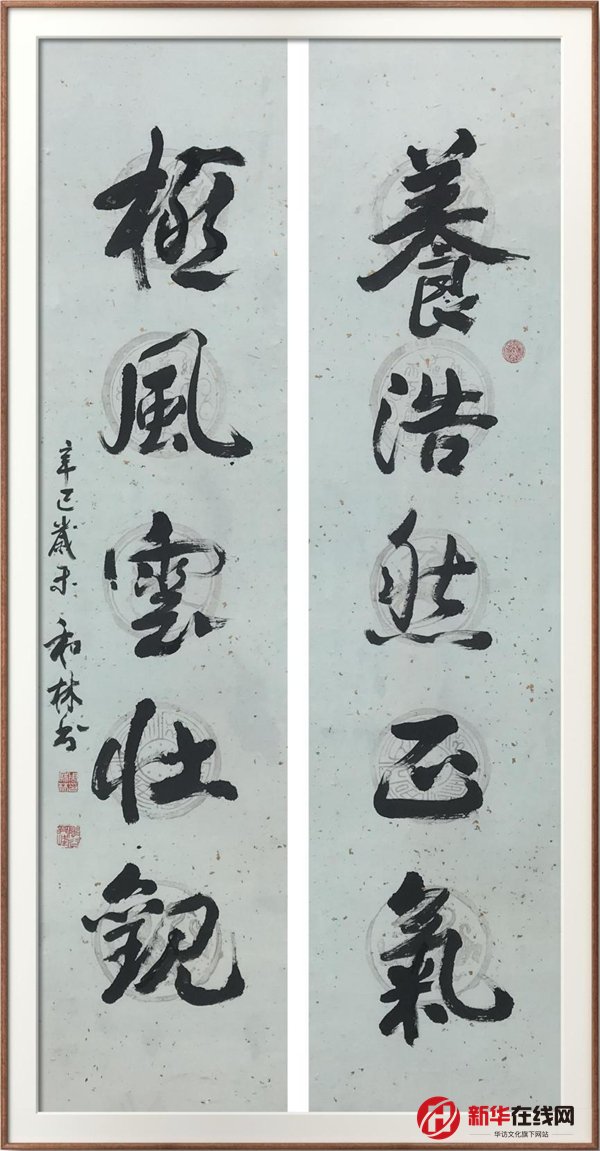 養浩然正氣
極風雲壯觀
辛巳歲末 和林书
新华在线网
华访文化旗下网站